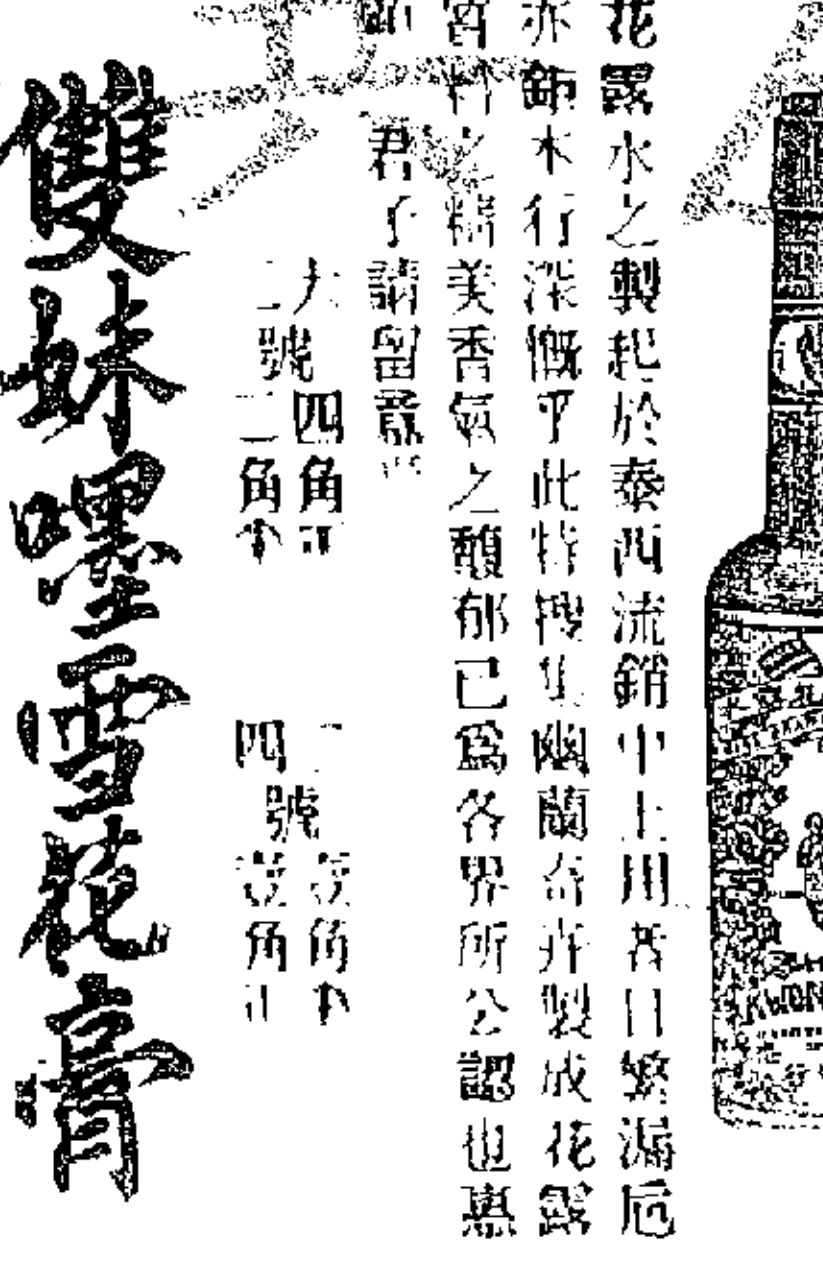 花露水之製起於泰西流銷中土用者日繁漏卮
亦鉅本行深慨乎此特搜集幽蘭奇卉製成花露
之精美香氣之馥郁已爲各界所公認也惠
君子請留意
大號四角
二號三角半
三號壹角半
四號壹角
雙妹嚜雪花膏
KWON